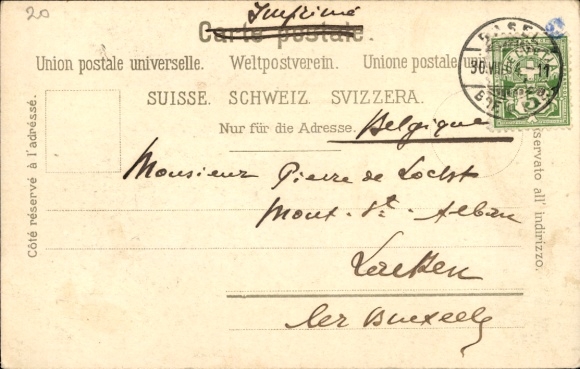 20
Imprimé
Carte postale.
Union postale universelle. Weltpostverein. Unione postale u
SUISSE. SCHWEIZ. SVIZZERA.
Nur für die Adresse.
Belgique
Côté réservé à l'adrèssé.
servato all' indirizzo.
Monsieur Pierre de Locht
Mont-St-Alban
Laeken
lez Bruxelles
BASEL
30.VII.
11
5